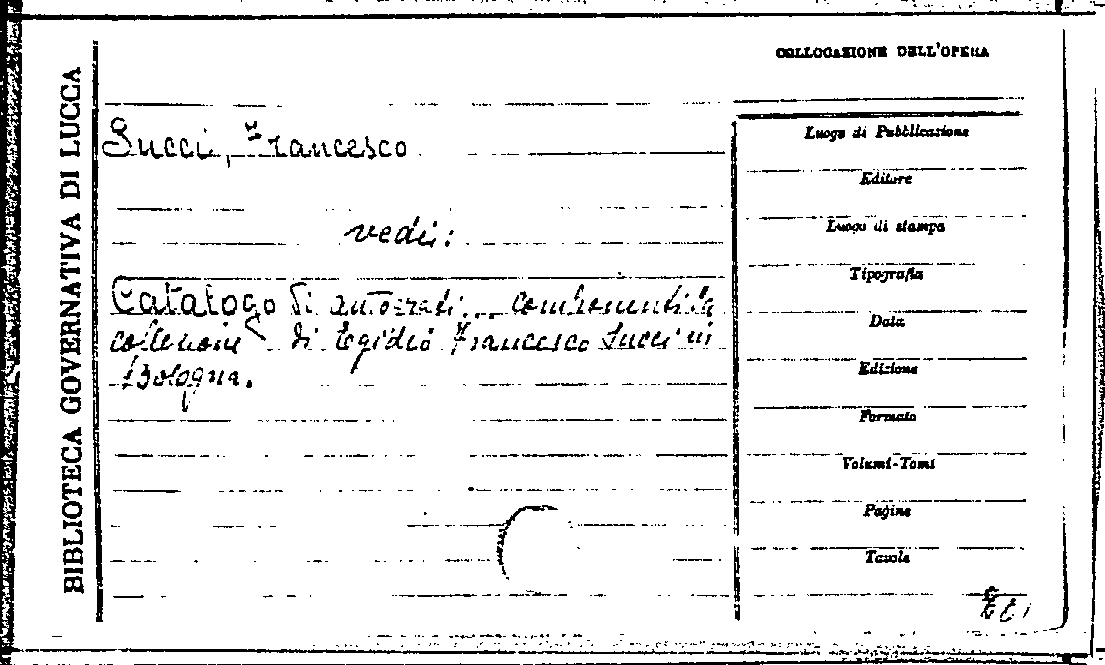 BIBLIOTECA GOVERNATIVA DI LUCCA
COLLOCAZIONE DELL'OPERA
Succi, Francesco
vedi:
Catalogo di autografi... componenti la
collezione di Egidio Francesco Succi in
Bologna.
Luogo di Pubblicazione
Editore
Luogo di stampa
Tipografia
Data
Edizione
Formato
Volumi-Tomi
Pagine
Tavole